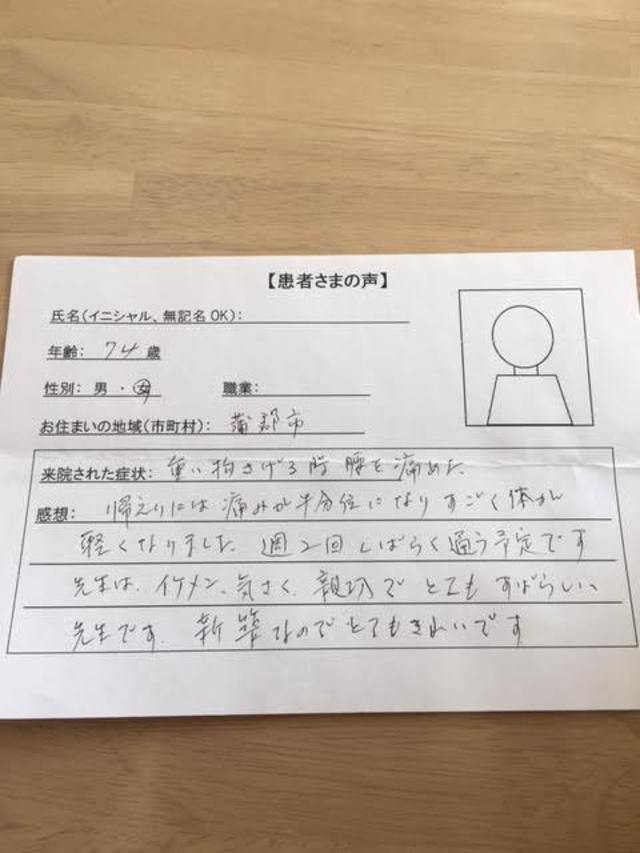 【患者さまの声】
氏名(イニシャル、無記名OK):
年齢: 74 歳
性別: 男 ・ 女 職業:
お住まいの地域(市町村): 蒲郡市
来院された症状: 重い物さげる時 腰を痛めた
感想: 帰えりには痛みが半分位になりすごく体が
軽くなりました 週2回しばらく通う予定です
先生は、イケメン、気さく、親切でとてもすばらしい
先生です。新築なのでとてもきれいです